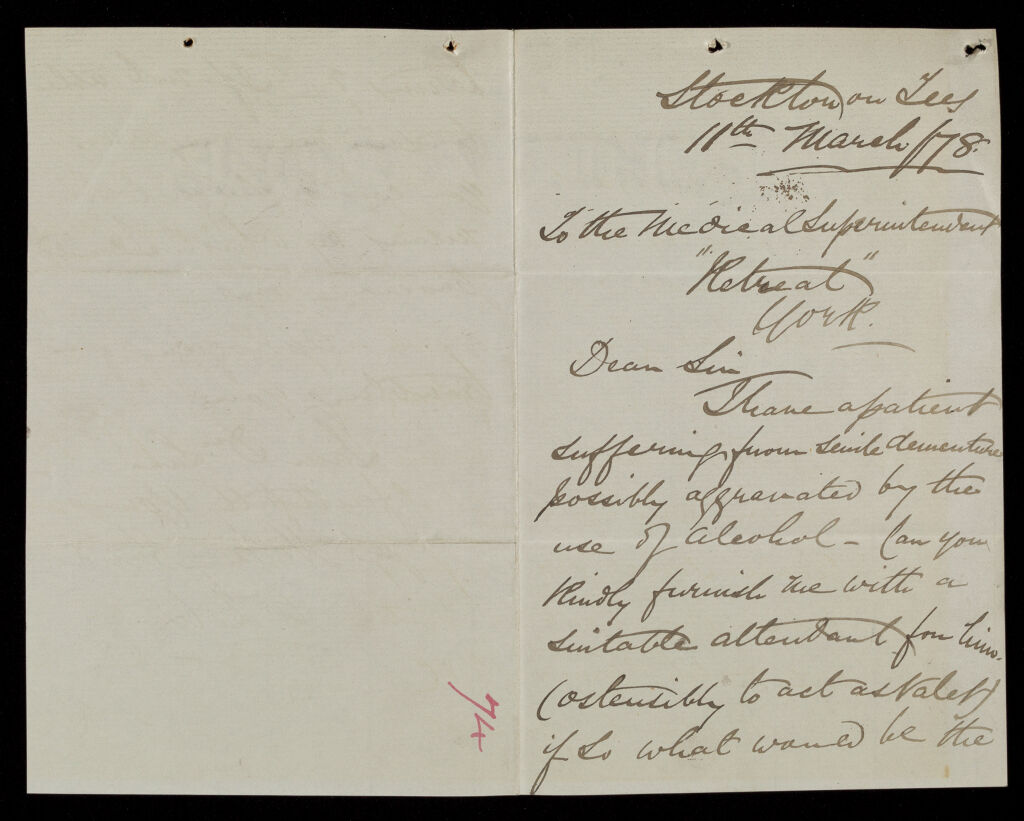 Stockton on Tees
11th March /78.
To the Medical Superintendent
"Retreat"
York.
Dear Sir
I have a patient
suffering from senile dementia
possibly aggravated by the
use of alcohol – Can you
kindly furnish me with a
suitable attendant for him.
(ostensibly to act as Valet)
if so what would be the
74